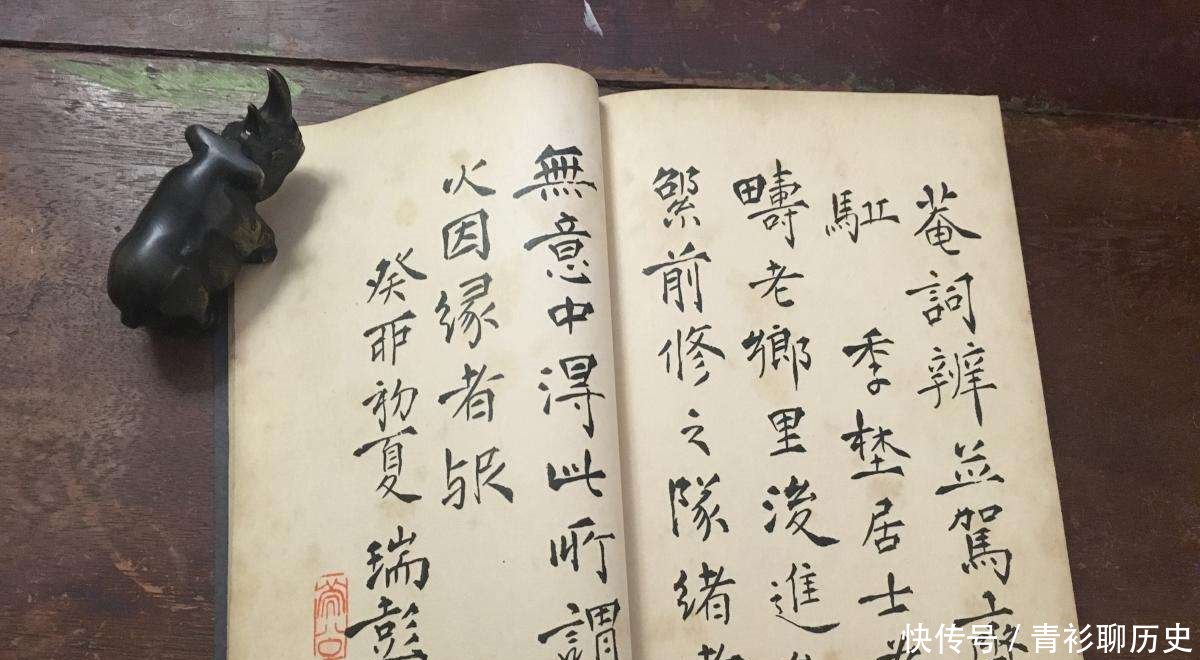 菴詞辨並駕
駈 季埜居士
疇老鄉里浚進
前修之隊緒
無意中淂此所謂
火因緣者
癸初夏瑞彭
快传号/青衫聊历史